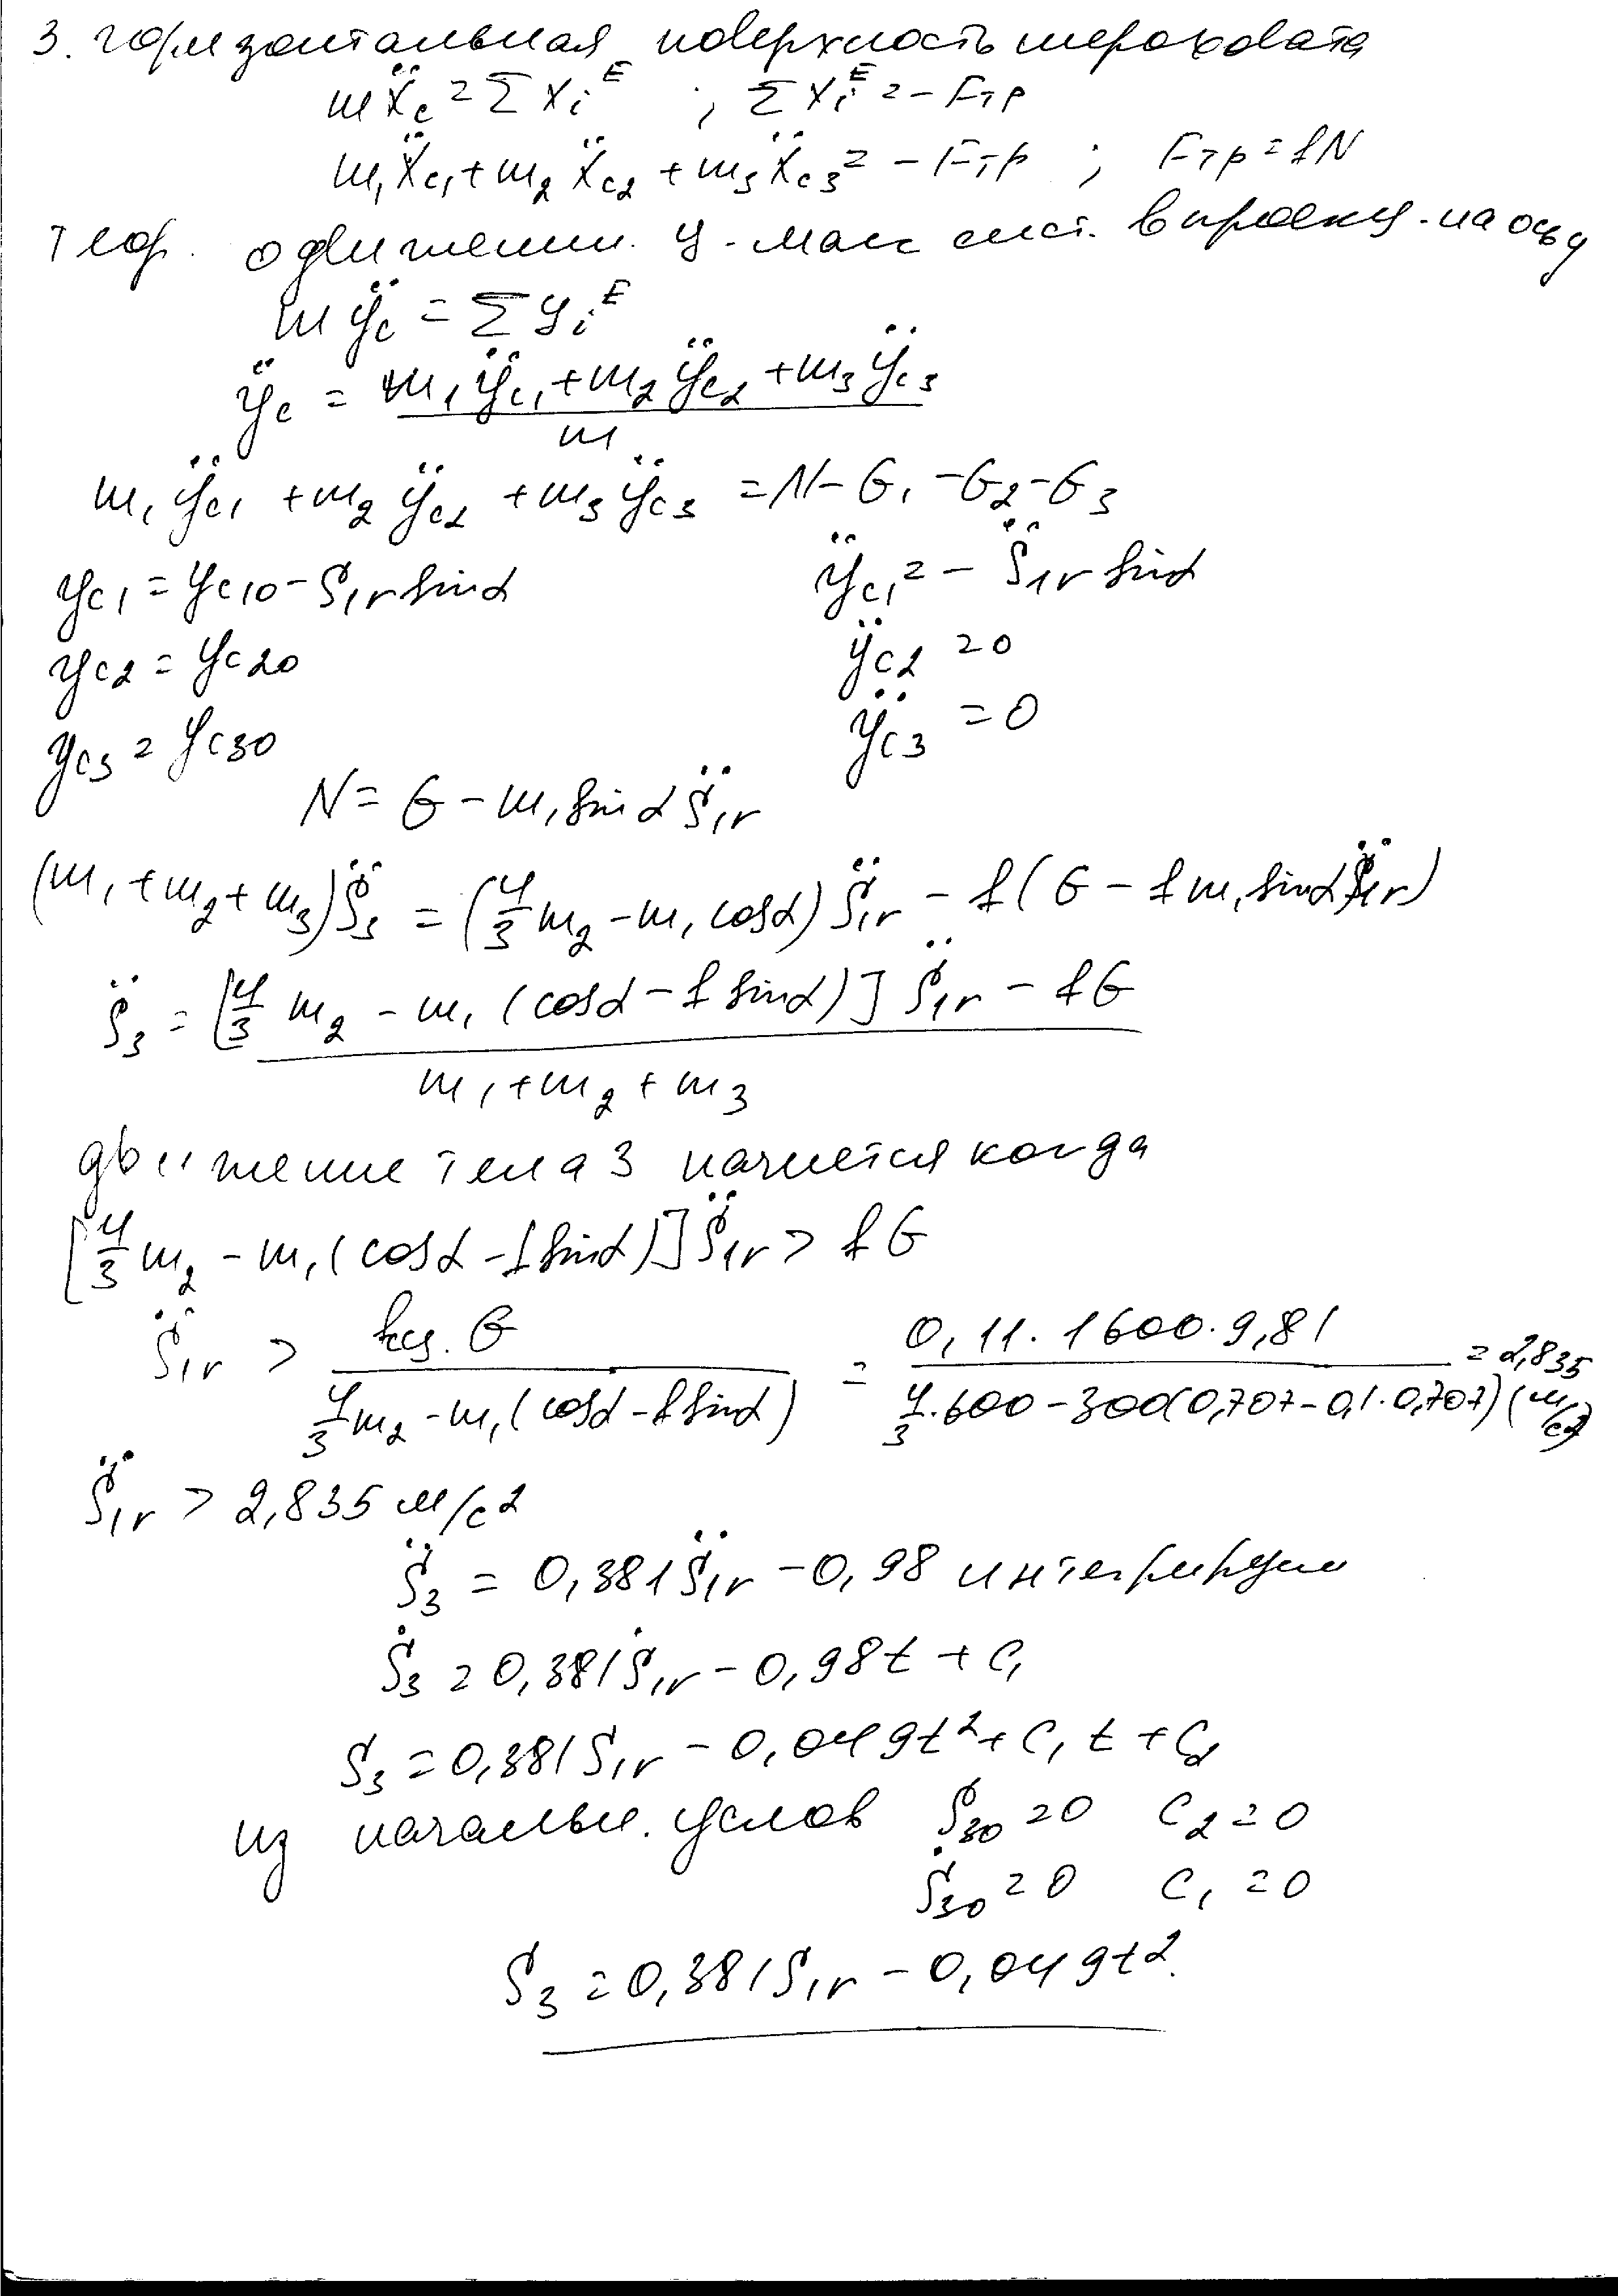 3. горизонтальная поверхность шероховата
mẍc = ΣXiᴱ ; ΣXiᴱ = -Fтр
m₁ẍc₁ + m₂ẍc₂ + m₃ẍc₃ = -Fтр ; Fтр = fN
теор. о движении. ц. масс сист. в проекц. на ось y
mÿc = Σyiᴱ
ÿc = (m₁ÿc₁ + m₂ÿc₂ + m₃ÿc₃) / m
m₁ÿc₁ + m₂ÿc₂ + m₃ÿc₃ = N - G₁ - G₂ - G₃
yc₁ = yc₁₀ - S₁r sinα ÿc₁ = - S̈₁r sinα
yc₂ = yc₂₀ ÿc₂ = 0
yc₃ = yc₃₀ ÿc₃ = 0
N = G - m₁ sinα S̈₁r
(m₁ + m₂ + m₃)S̈₃ = (4/3 m₂ - m₁ cosα) S̈₁r - f(G - f m₁ sinα S̈₁r)
S̈₃ = ([4/3 m₂ - m₁(cosα - f sinα)] S̈₁r - fG) / (m₁ + m₂ + m₃)
движение тела 3 начнется когда
[4/3 m₂ - m₁(cosα - f sinα)] S̈₁r > fG
S̈₁r > (fсц. G) / (4/3 m₂ - m₁(cosα - f sinα)) = (0,11 · 1600 · 9,81) / (4/3 · 600 - 300(0,707 - 0,1 · 0,707)) = 2,835 (м/с2)
S̈₁r > 2,835 м/с2
S̈₃ = 0,381S̈₁r - 0,98 интегрируем
Ṡ₃ = 0,381Ṡ₁r - 0,98t + C₁
S₃ = 0,381S₁r - 0,049t² + C₁t + C₂
из начальн. услов S₃₀ = 0 C₂ = 0
Ṡ₃₀ = 0 C₁ = 0
S₃ = 0,381S₁r - 0,049t².